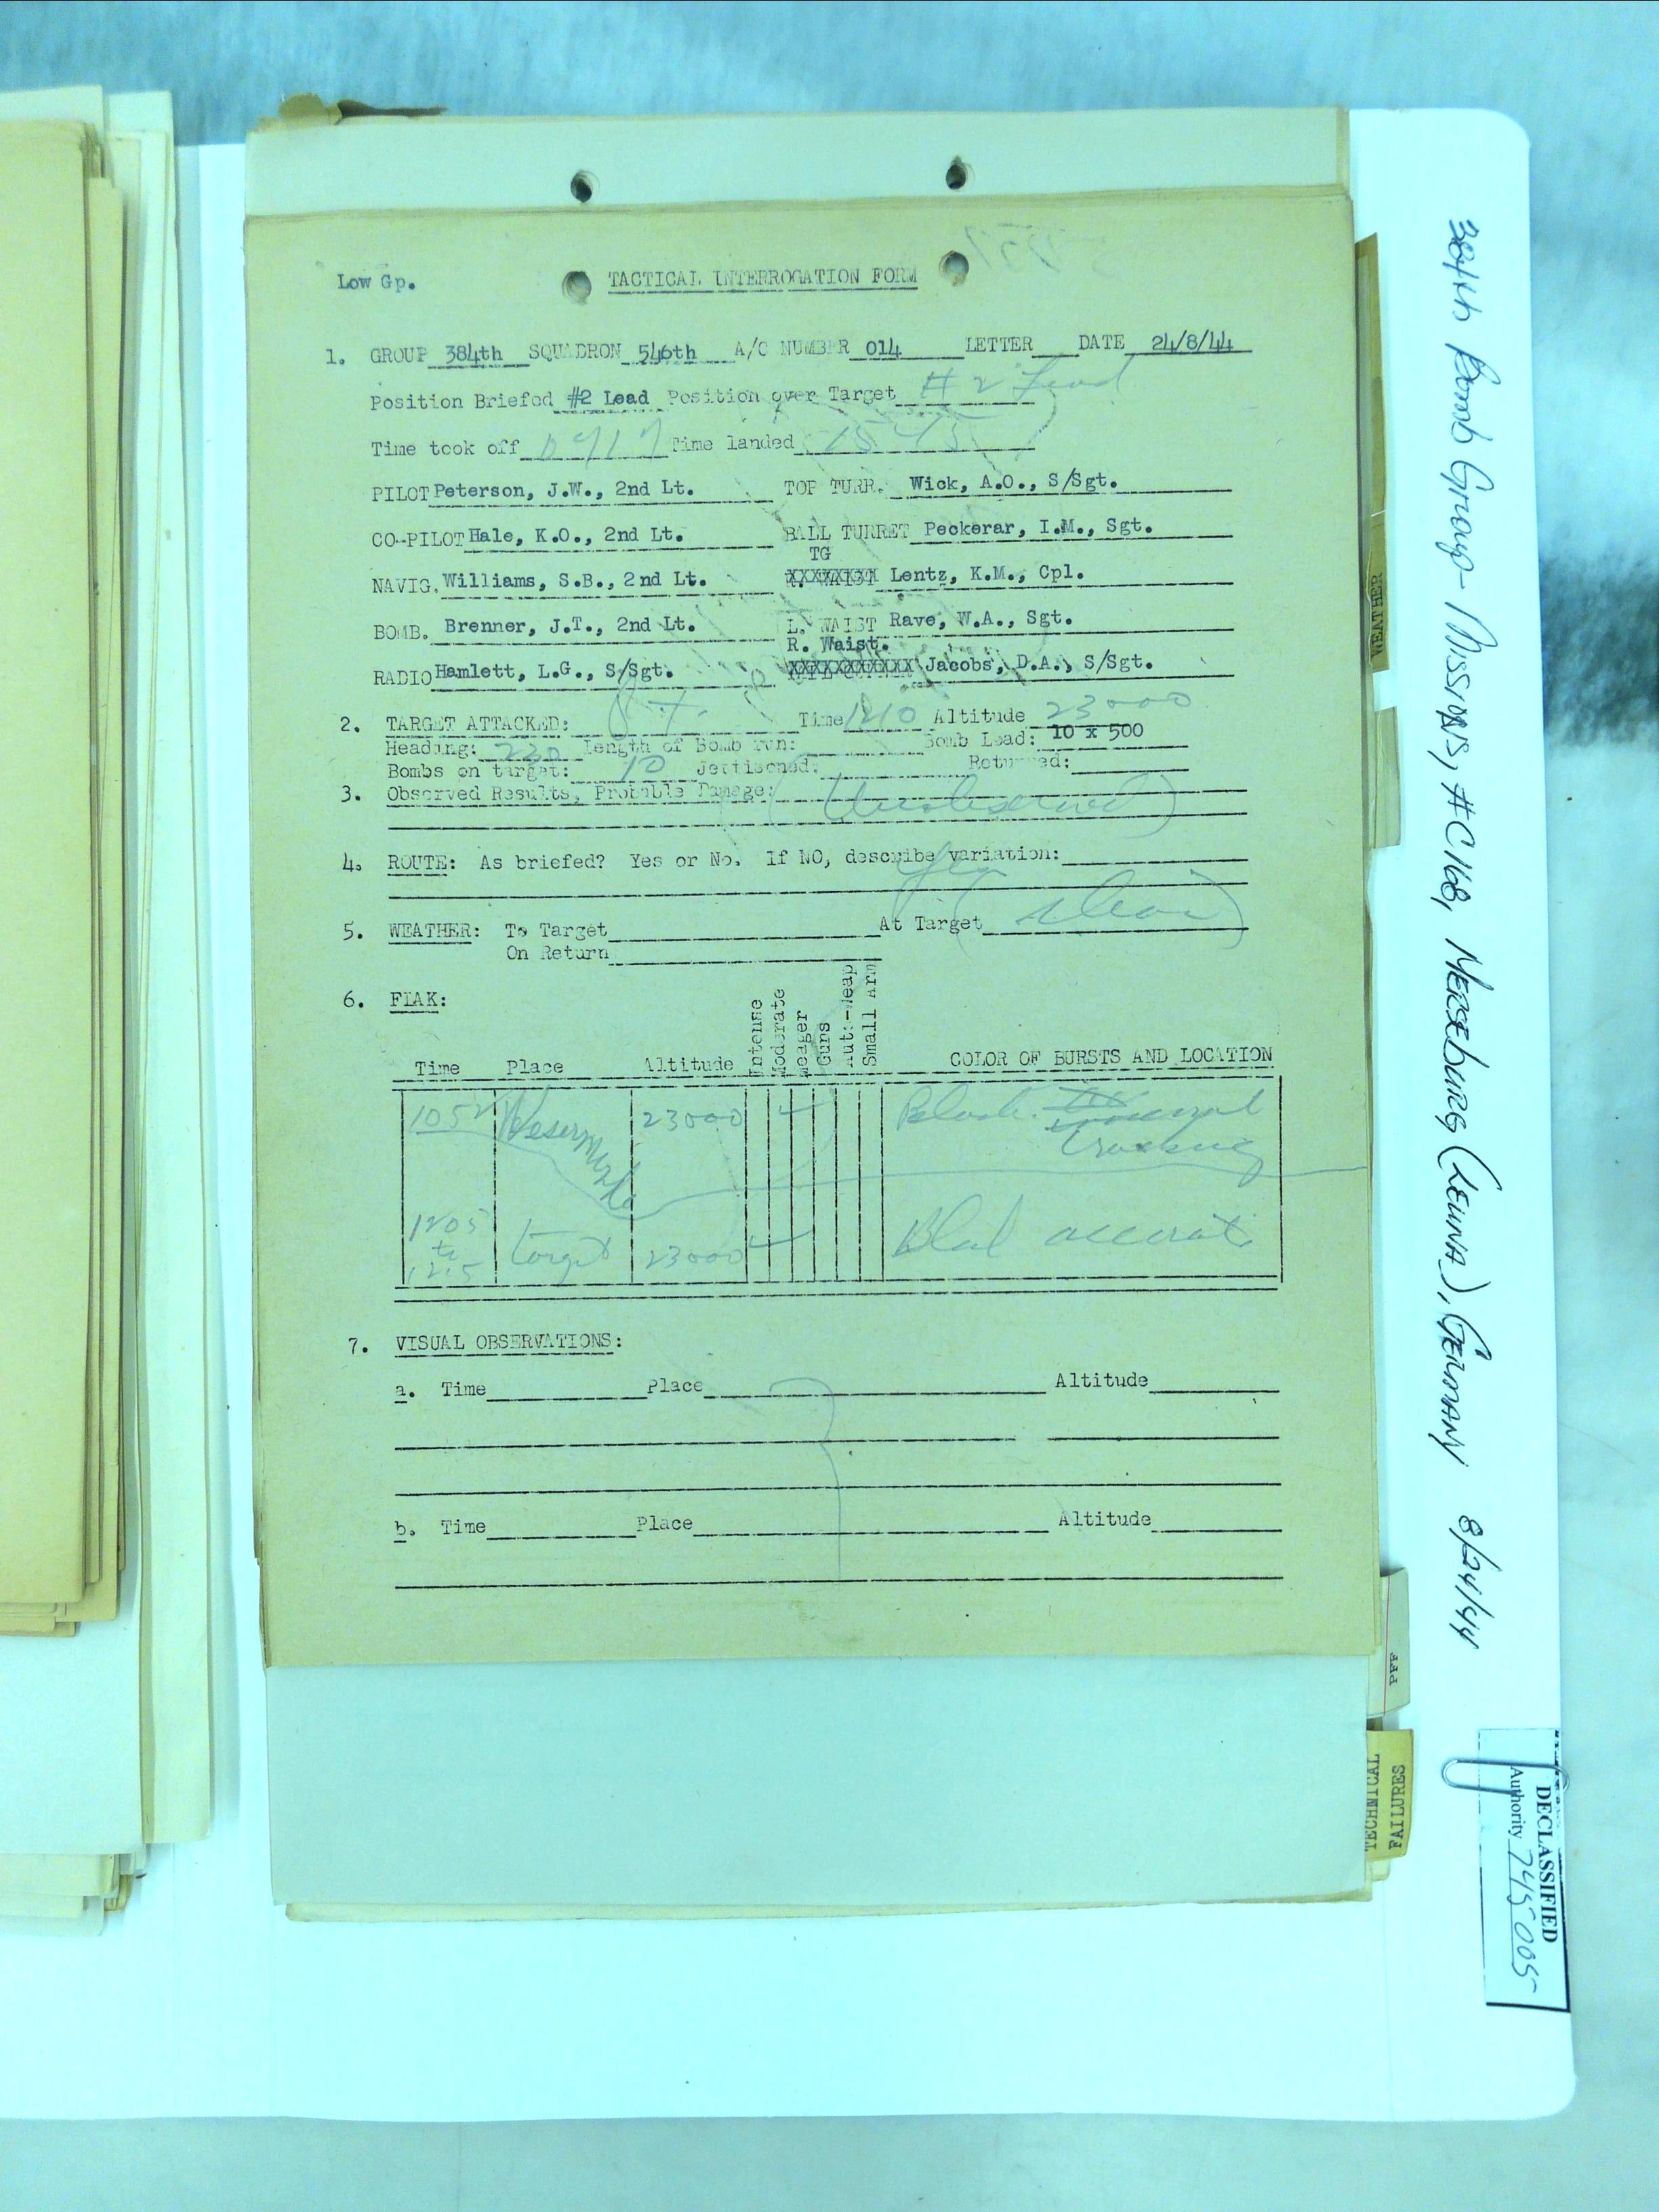 Low Gp.
TACTICAL INTERROGATION FORM
1. GROUP 384th SQUADRON 546th A/C NUMBER 014 LETTER DATE 24/8/44
Position Briefed #2 Lead Position over Target #2 Lead
Time took off Time landed 1545
PILOT Peterson, J.W., 2nd Lt. TOP TURR. Wick, A.O., S/Sgt.
CO-PILOT Hale, K.O., 2nd Lt. BALL TURRET Peckerar, I.M., Sgt.
TG
NAVIG. Williams, S.B., 2nd Lt. R. WAIST Lentz, K.M., Cpl.
BOMB. Brenner, J.T., 2nd Lt. L. WAIST Rave, W.A., Sgt.
R. Waist.
RADIO Hamlett, L.G., S/Sgt. XXXXXXXXXXXX Jacobs, D.A., S/Sgt.
2. TARGET ATTACKED: P.T. Time 1210 Altitude 23000
Heading: 230 length of Bomb run: Bomb Load: 10 x 500
Bombs on target: 10 Jettisoned: Returned:
3. Observed Results, Probable Damage: (Unobserved)
4. ROUTE: As briefed? Yes or No. If NO, describe variation:
Yes
5. WEATHER: To Target At Target (clear)
On Return
6. FLAK:
Time Place Altitude Intense Moderate Meager Guns Auto-Weap Small Arm COLOR OF BURSTS AND LOCATION
1052 Wesermunde 23000 Black
tracking
1205 to 1215 target 23000 Black accurate
7. VISUAL OBSERVATIONS:
a. Time Place Altitude
b. Time Place Altitude
384th Bomb Group - Missions, #C168, MERSEBURG (LEUNA), GERMANY 8/24/44
WEATHER
PFF
TECHNICAL
FAILURES
DECLASSIFIED
Authority 745005